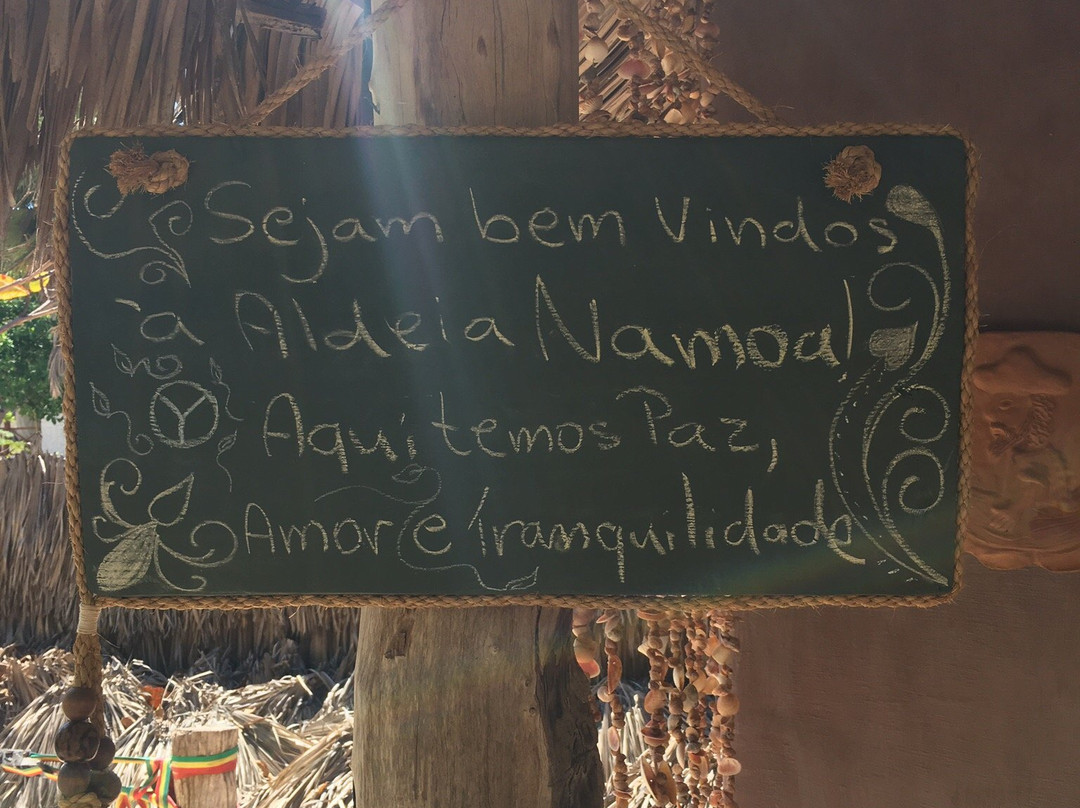 Sejam bem Vindos
à Aldeia Namoa!
Aqui temos Paz,
Amor e tranquilidade